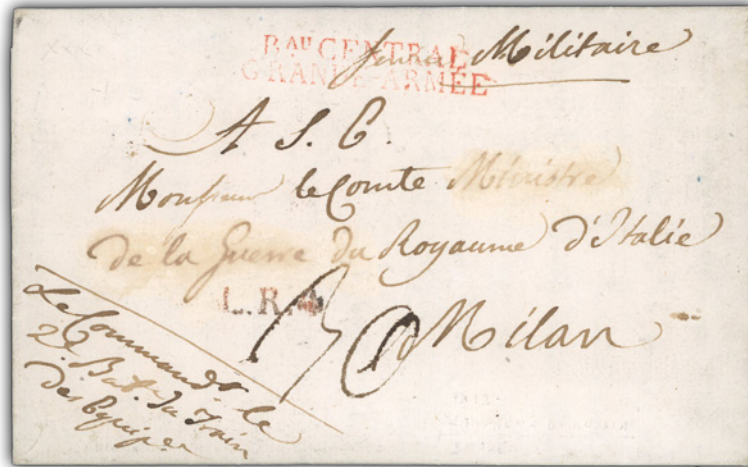 Bau CENTRAL
GRANDE-ARMÉE
Militaire
A S. E.
Monsieur le Comte Ministre
de la Guerre du Royaume d'Italie
L.R.4
30
Milan
Le Commandt le
2e Bat. du Train
des Equipes